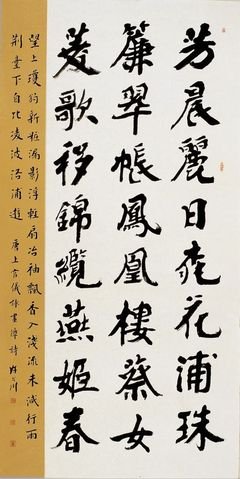 芳晨麗日桃花浦珠
簾翠帳鳳凰樓蔡女
菱歌移錦纜燕姬春
望上瓊鉤新粧漏影浮輕扇冶袖飄香入淺流未減行雨
荊臺下自比凌波洛浦遊 唐上官儀詠畫障詩